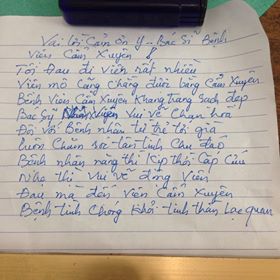 Vài lời Cảm ơn Y - Bác Sĩ Bệnh
Viện Cẩm Xuyên
Tôi Đau đi Viện rất nhiều
Viện mô Cũng chẳng được bằng Cẩm Xuyên
Bệnh Viện Cẩm Xuyên Khang trang sạch đẹp
Bác Sỹ Vui vẽ Chan hòa
Đối với Bệnh nhân từ trẻ tới già
luôn Chăm sóc tận tình Chu đáo
Bệnh nhân nặng thì Kịp thời Cấp Cứu
Nhẹ thì Vui vẽ động Viên
Đau mà đến Viện Cẩm Xuyên
Bệnh tình Chóng khỏi tinh thần lạc quan